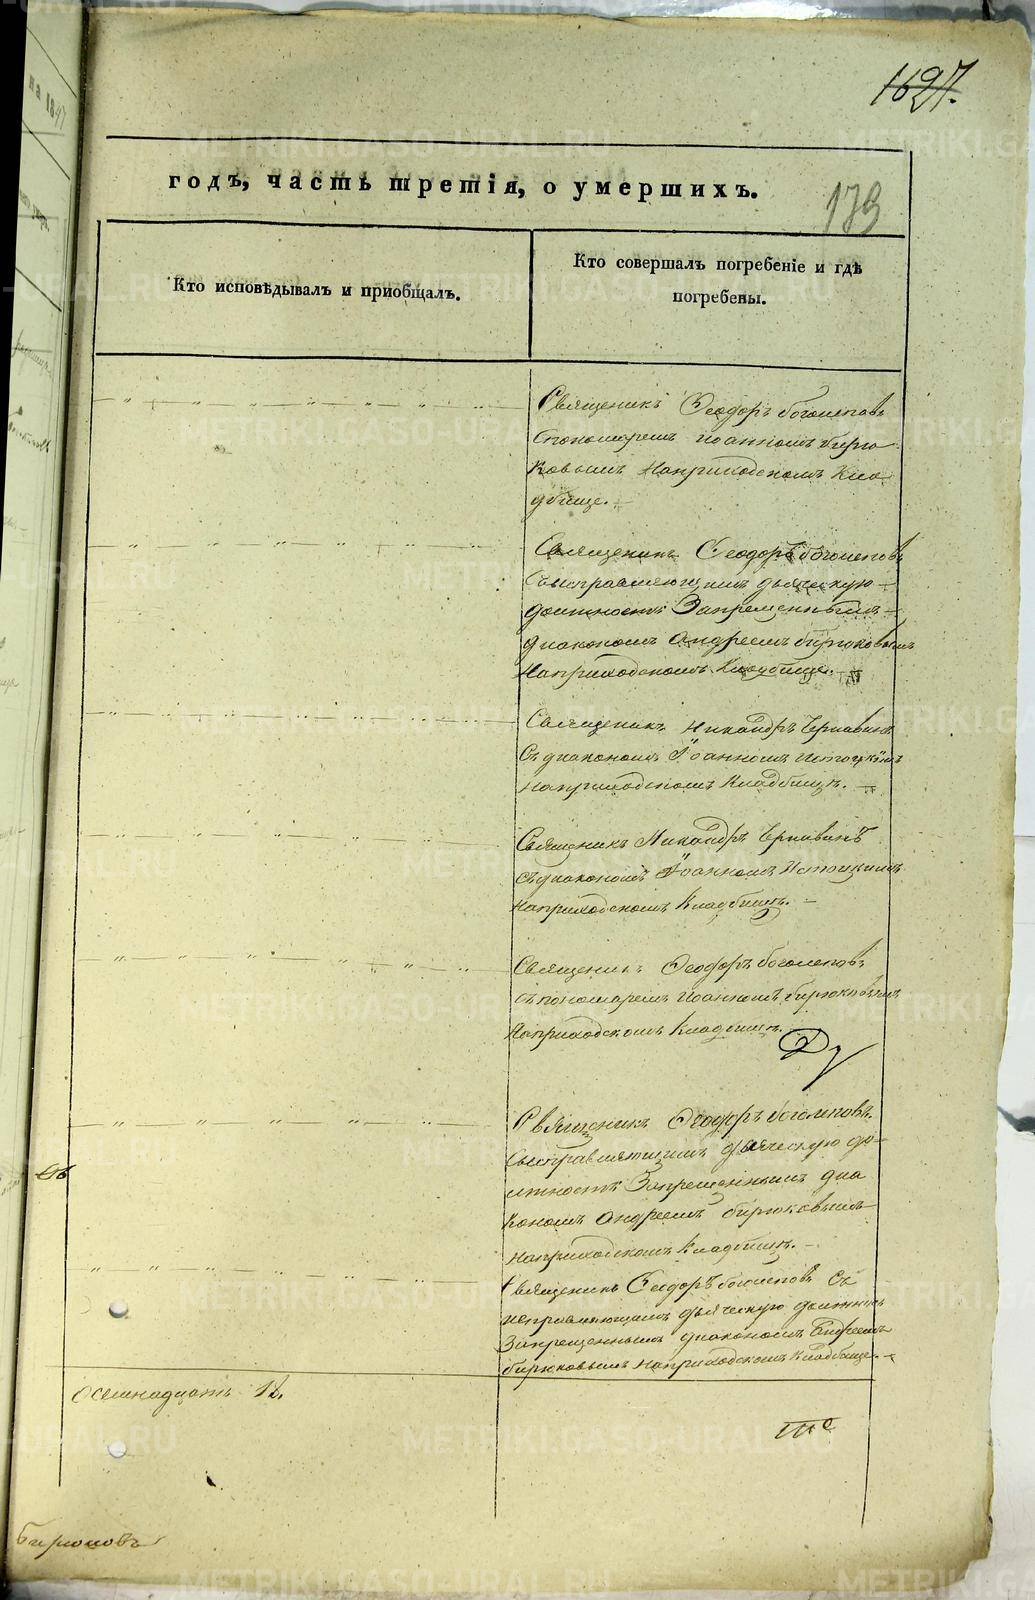 1627.
годъ, часть третія, о умершихъ.
179
Кто исповѣдывалъ и приобщалъ.
Кто совершалъ погребеніе и гдѣ
погребены.
Священикъ Ѳеодоръ боголеповъ
Спономаремъ иоанномъ бирю
ковымъ Наприходскомъ Кла
дбище.
Священикъ Ѳеодоръ боголеповъ
Сысправляющимъ дьяческую
должность Запрещеннымъ
диакономъ Андреемъ бирюковымъ
Наприходскомъ Кладбище.
Священикъ Никандръ Чернавинъ
Съ диакономъ Іоанномъ Истоцкимъ
Наприходскомъ Кладбищѣ.
Священикъ Никандръ Чернавинъ
съ диакономъ Іоанномъ Истоцкимъ
Наприходскомъ Кладбищѣ.
Священикъ Ѳеодоръ боголеповъ
съ пономаремъ Иоанномъ бирюковымъ
Наприходскомъ Кладбищѣ.
Священикъ Ѳеодоръ боголеповъ
Сысправляющимъ дьяческую до
лжность Запрещеннымъ диа
кономъ Андреемъ бирюковымъ
Наприходскомъ Кладбищѣ.
Священикъ Ѳеодоръ боголеповъ Съ
исправляющимъ дьяческую должность
Запрещеннымъ диакономъ Андреемъ
бирюковымъ Наприходскомъ Кладбище.
Осемнадцать 18.
бирюковъ
METRIKI.GASO-URAL.RU